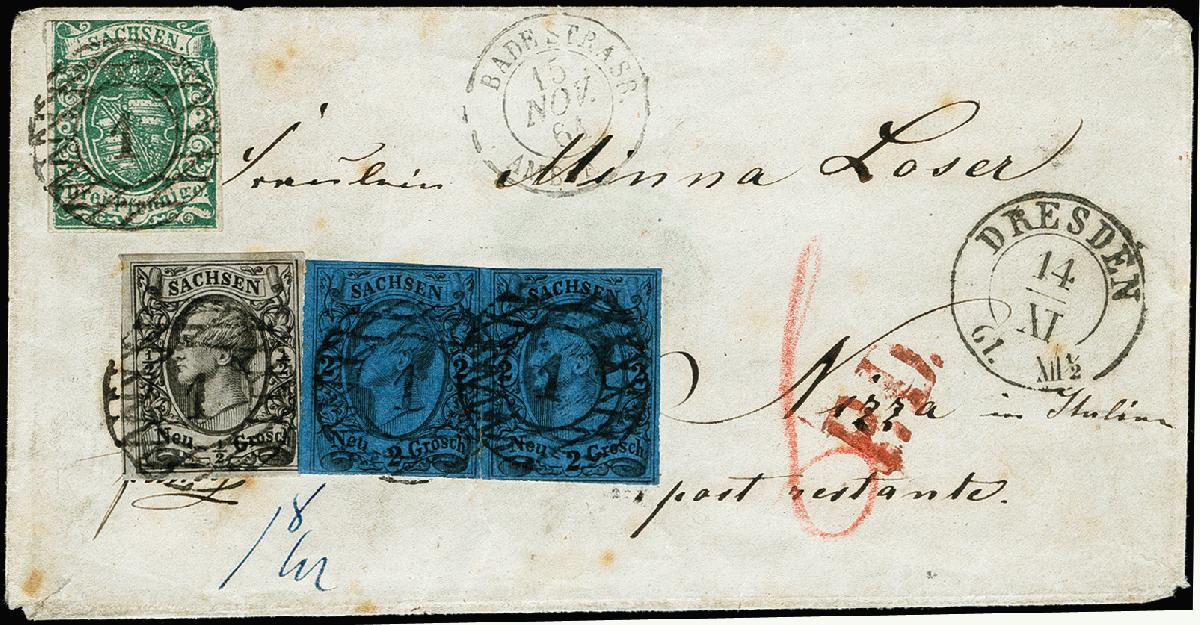 SACHSEN.
1
Drei Pfennige
BADE STRASB.
15
NOV.
61
AM
Fräulein Minna Loser
DRESDEN
14
XI
61.
XII½
SACHSEN
½ ½
1
Neu ½ Grosch
SACHSEN
2 2
1
Neu 2 Grosch
SACHSEN
2 2
1
Neu 2 Grosch
6
P.D.
Nizza in Italien
post restante.
8